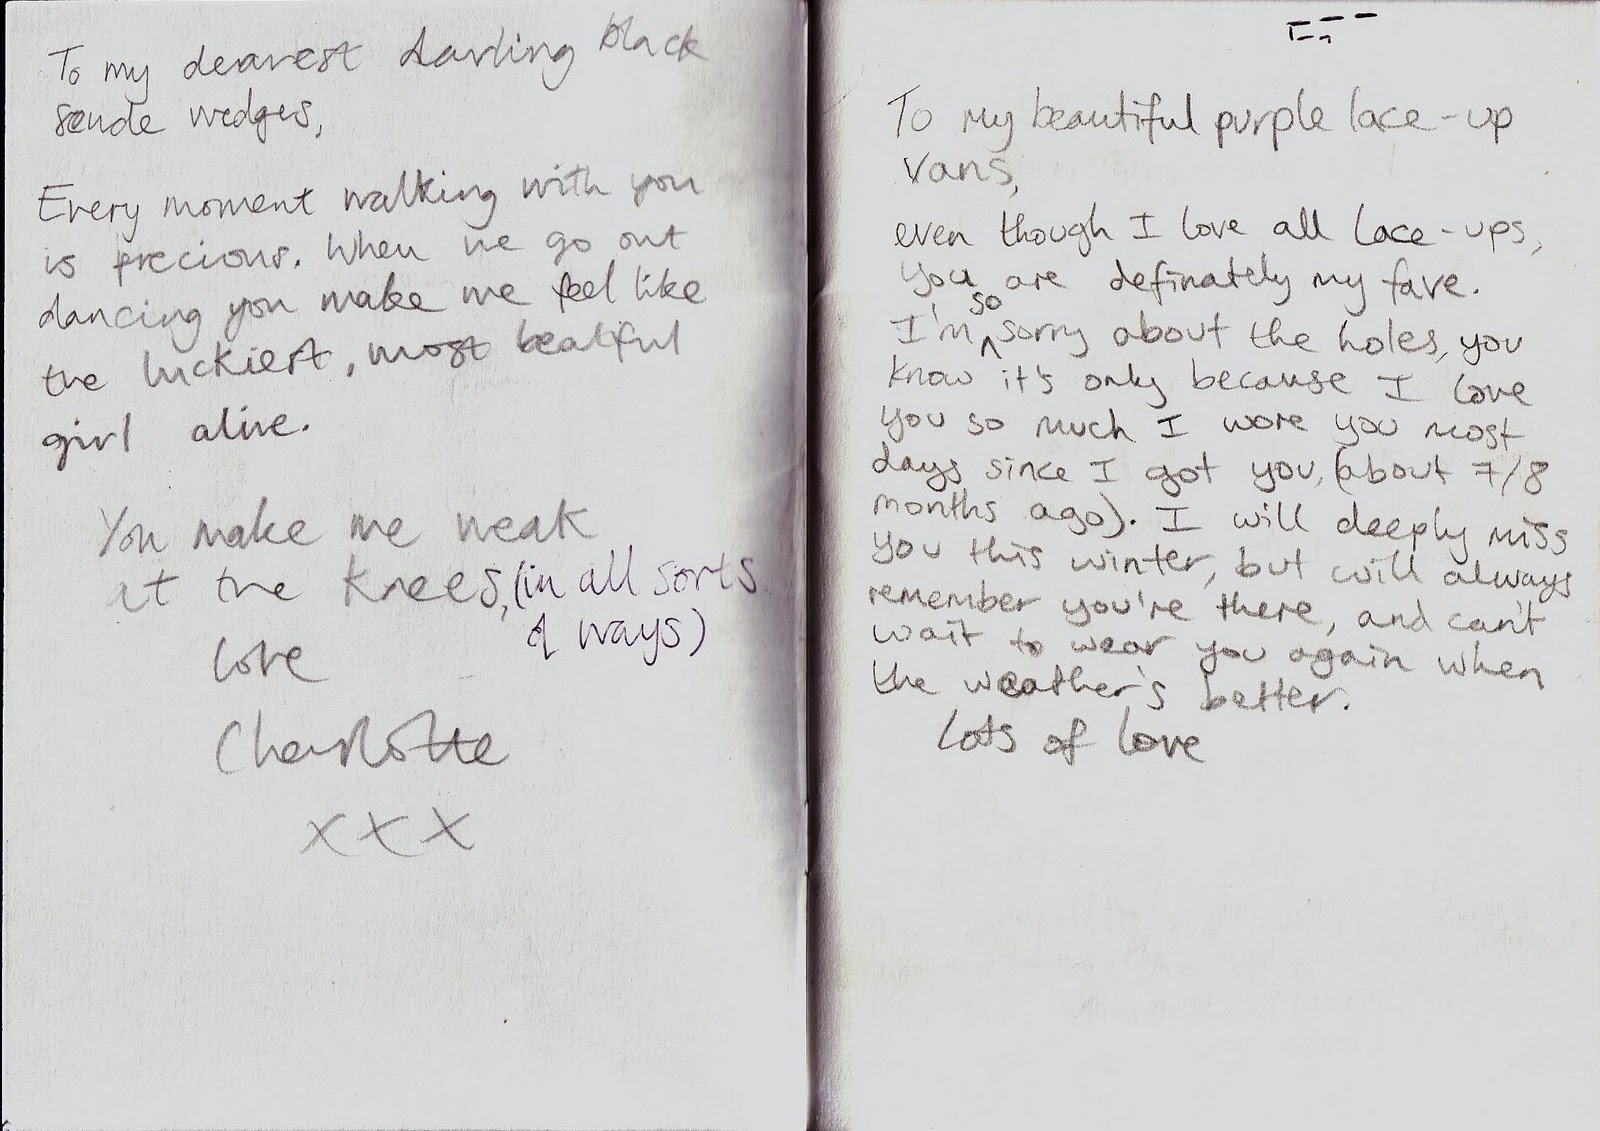 To my dearest darling black
seude wedges,
Every moment walking with you
is precious. When we go out
dancing you make me feel like
the luckiest, most beatiful
girl alive.
You make me weak
at the knees, (in all sorts
of ways)
love
Charlotte
xxx
To my beautiful purple lace-up
vans,
even though I love all lace-ups,
you are definately my fave.
I'm so sorry about the holes, you
know it's only because I love
you so much I wore you most
days since I got you, (about 7/8
months ago). I will deeply miss
you this winter, but will always
remember you're there, and can't
wait to wear you again when
the weather's better.
Lots of love